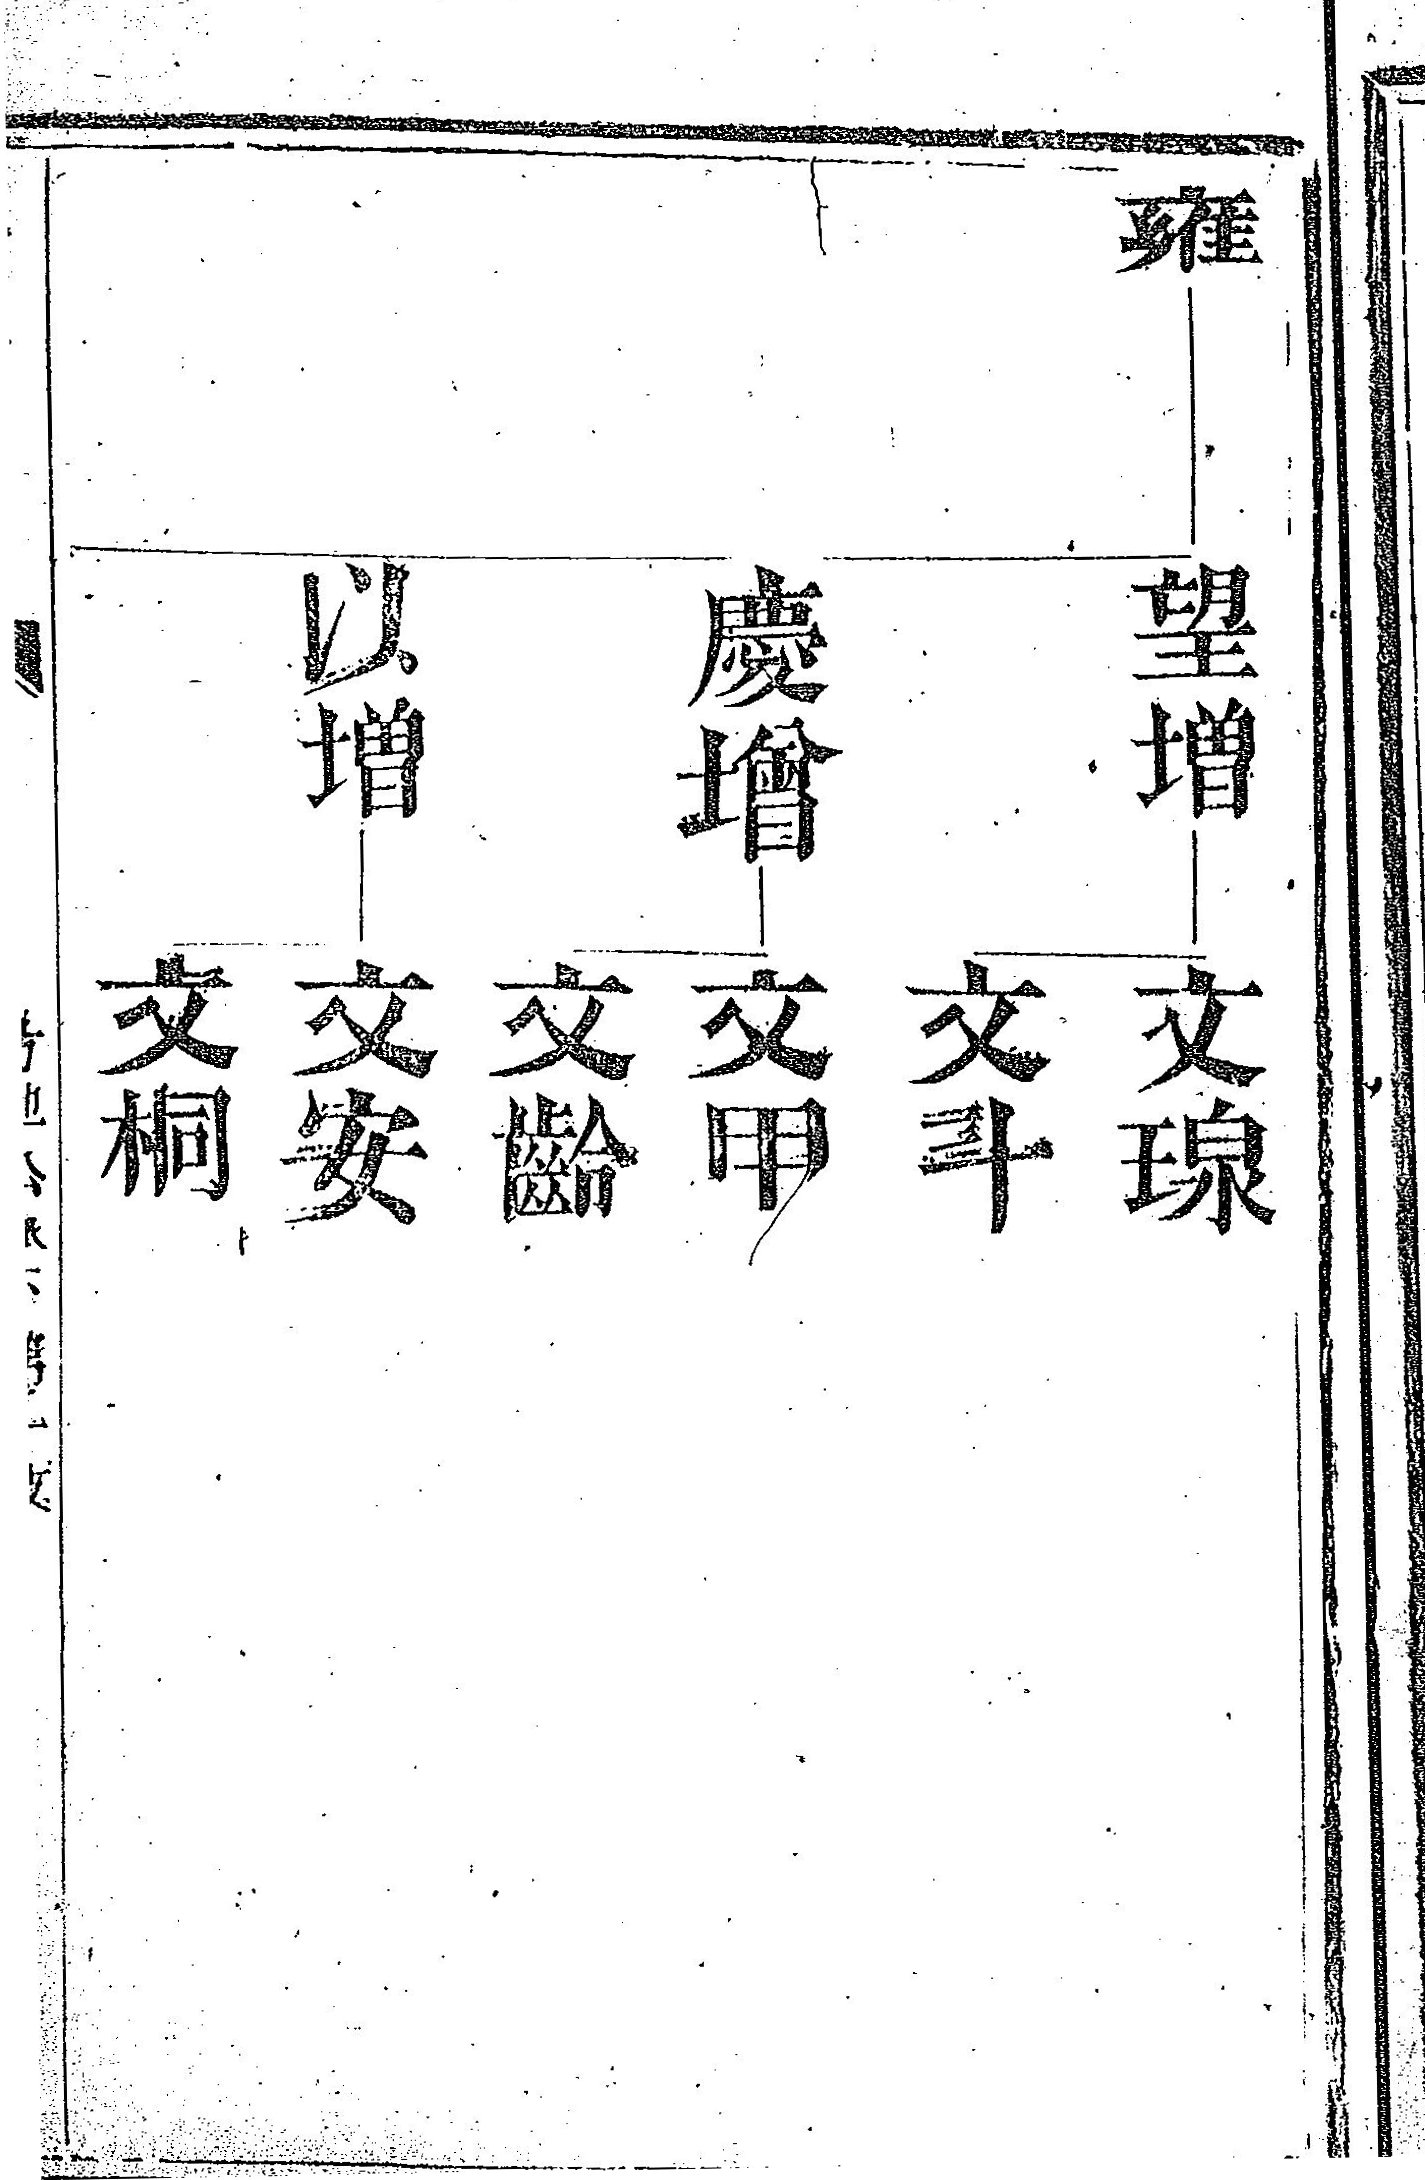 雍
望增
慶增
以增
文琼
文斗
文甲
文齡
文安
文桐